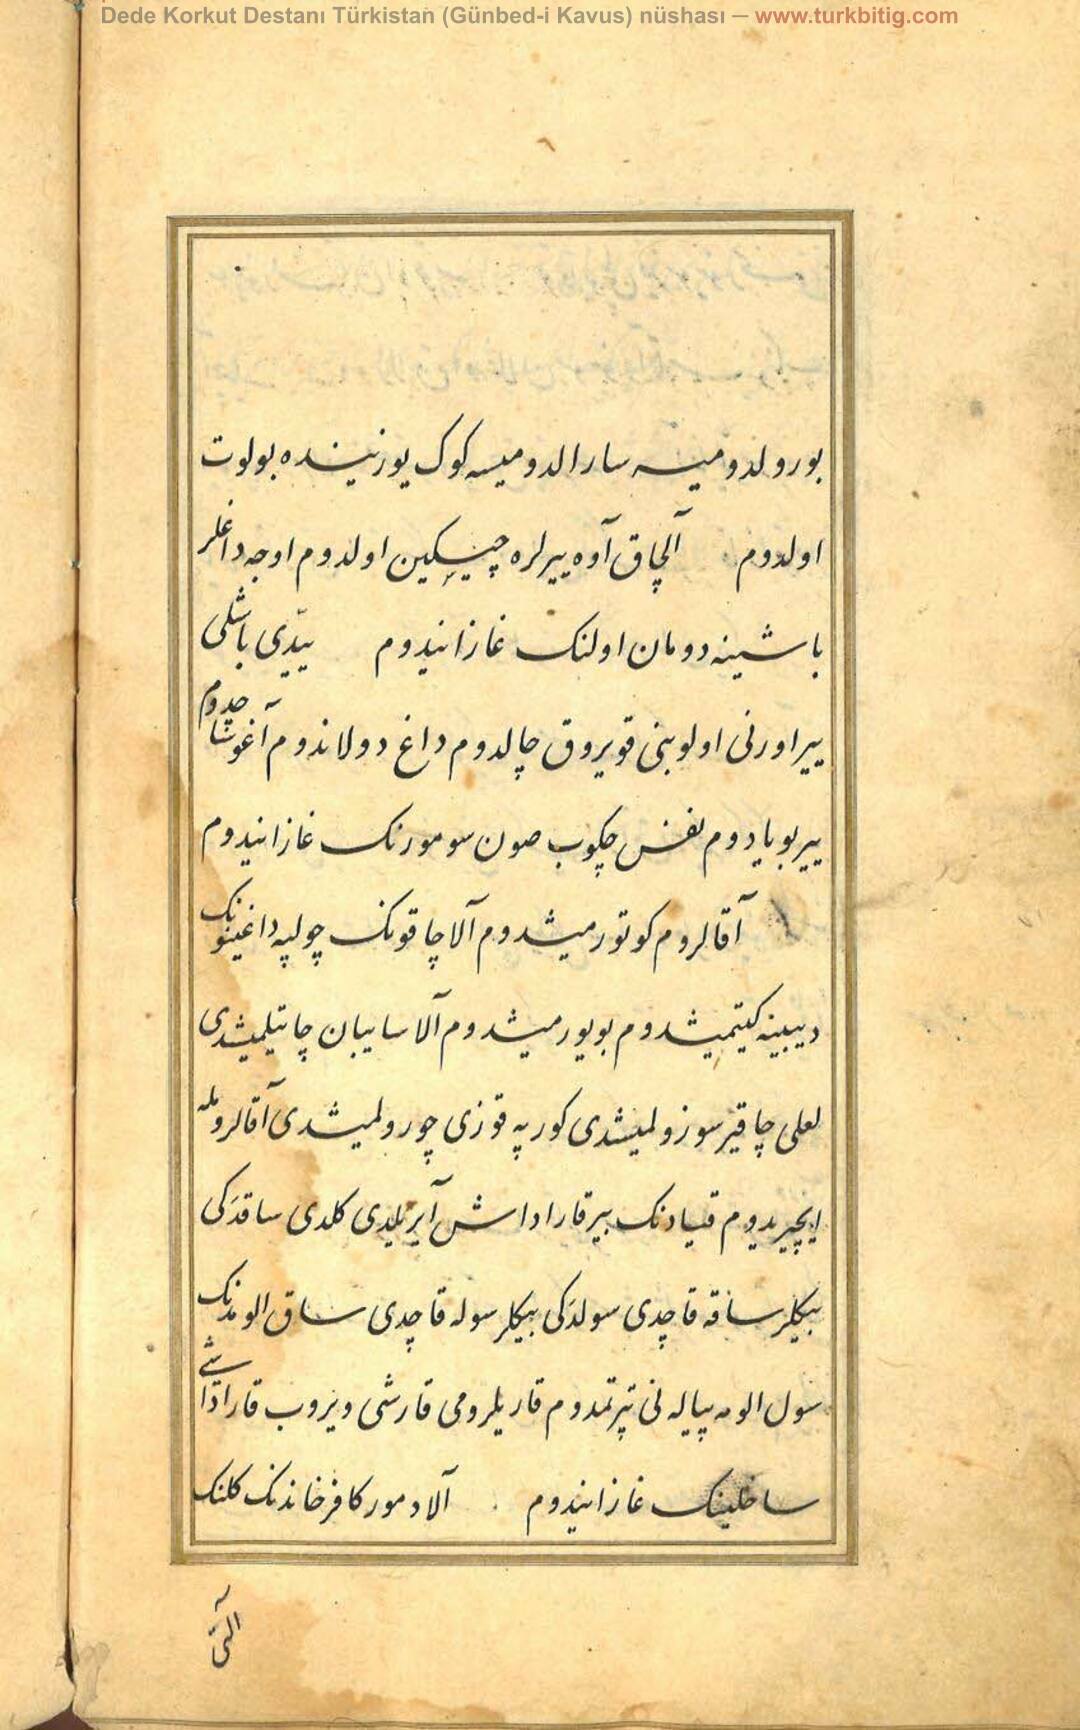 Dede Korkut Destanı Türkistan (Günbed-i Kavus) nüshası — www.turkbitig.com
بورولدومیسه سارالدومیسه کوک یوزینده بولوت
اولدوم آلچاق آوه ییرلره چیسکین اولدوم اوجه داغلر
باشینه دومان اولنک غازانیدوم ییدّی باشلی
ییر اورنی اولوبنی قویروق چالدوم داغ دولاندوم آغوشا چدوم
ییر بویادوم نفس چکوب صون سومورنک غازانیدوم
آقالروم کوتورمیشدوم آلاچاقونک چولپه داغینونک
دیبینه کیتمیشدوم بویورمیشدوم آلا سایبان چاتیلمیشدی
لعلی چاقیر سوزولمیشدی کورپه قوزی چورولمیشدی آقالرومله
ایچیردوم قیادنک بیر قاراداش آیریلدی کلدی ساقدَکی
بیکلر ساقه قاچدی سولدَکی بیکلر سوله قاچدی ساق الومدنک
سول الومه پیاله نی تپرتمدوم قاریلرومی قارشی ویروب قاراداشی
ساخلینک غازانیدوم آلا دمور کافرخاندنک کلنک
آلتی